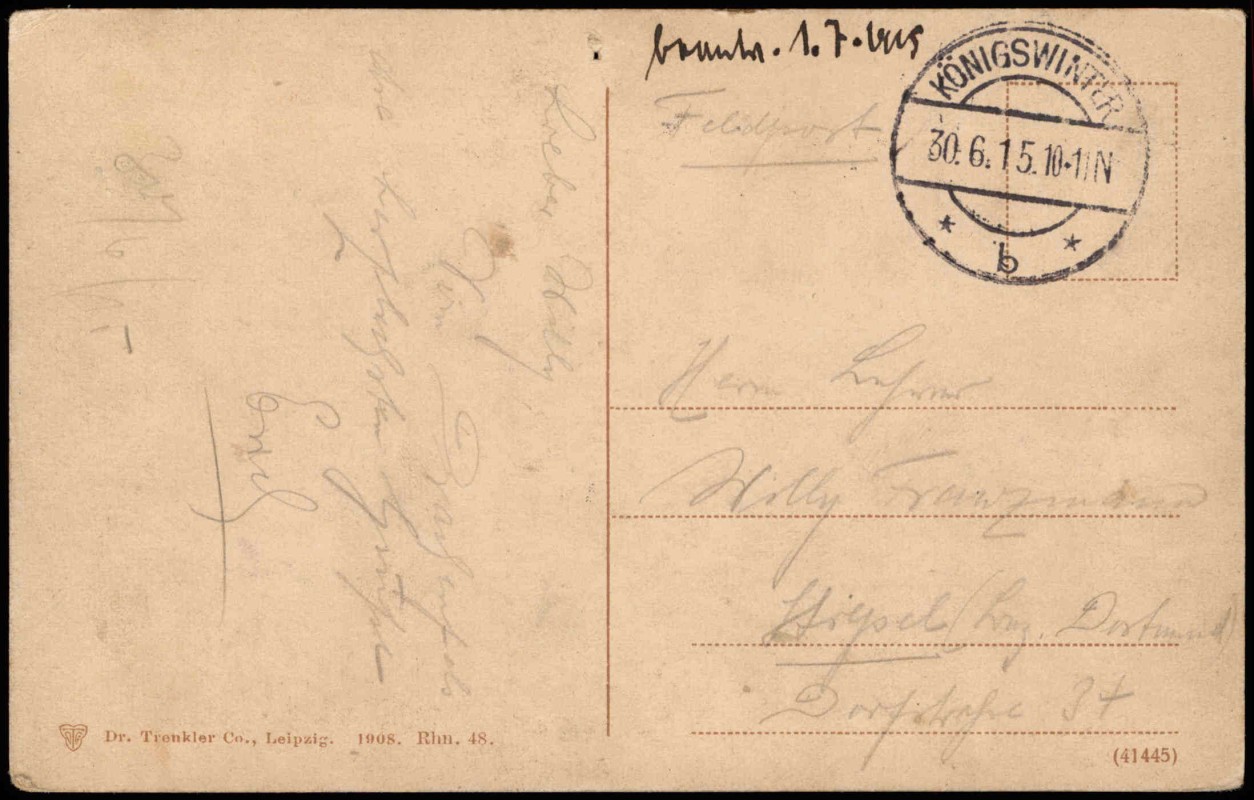 beantw. 1.7.1915
KÖNIGSWINTER
30.6.15.10-11N
* b *
Feldpost
Herrn Lehrer
Willy Franzmann
Stiepel (Krg. Dortmund)
Dorfstraße 34
Lieber Willy
Vom Drachenfels
die herzlichsten Grüße
Emil
30/6/15
Dr. Trenkler Co., Leipzig. 1908. Rhn. 48.
(41445)